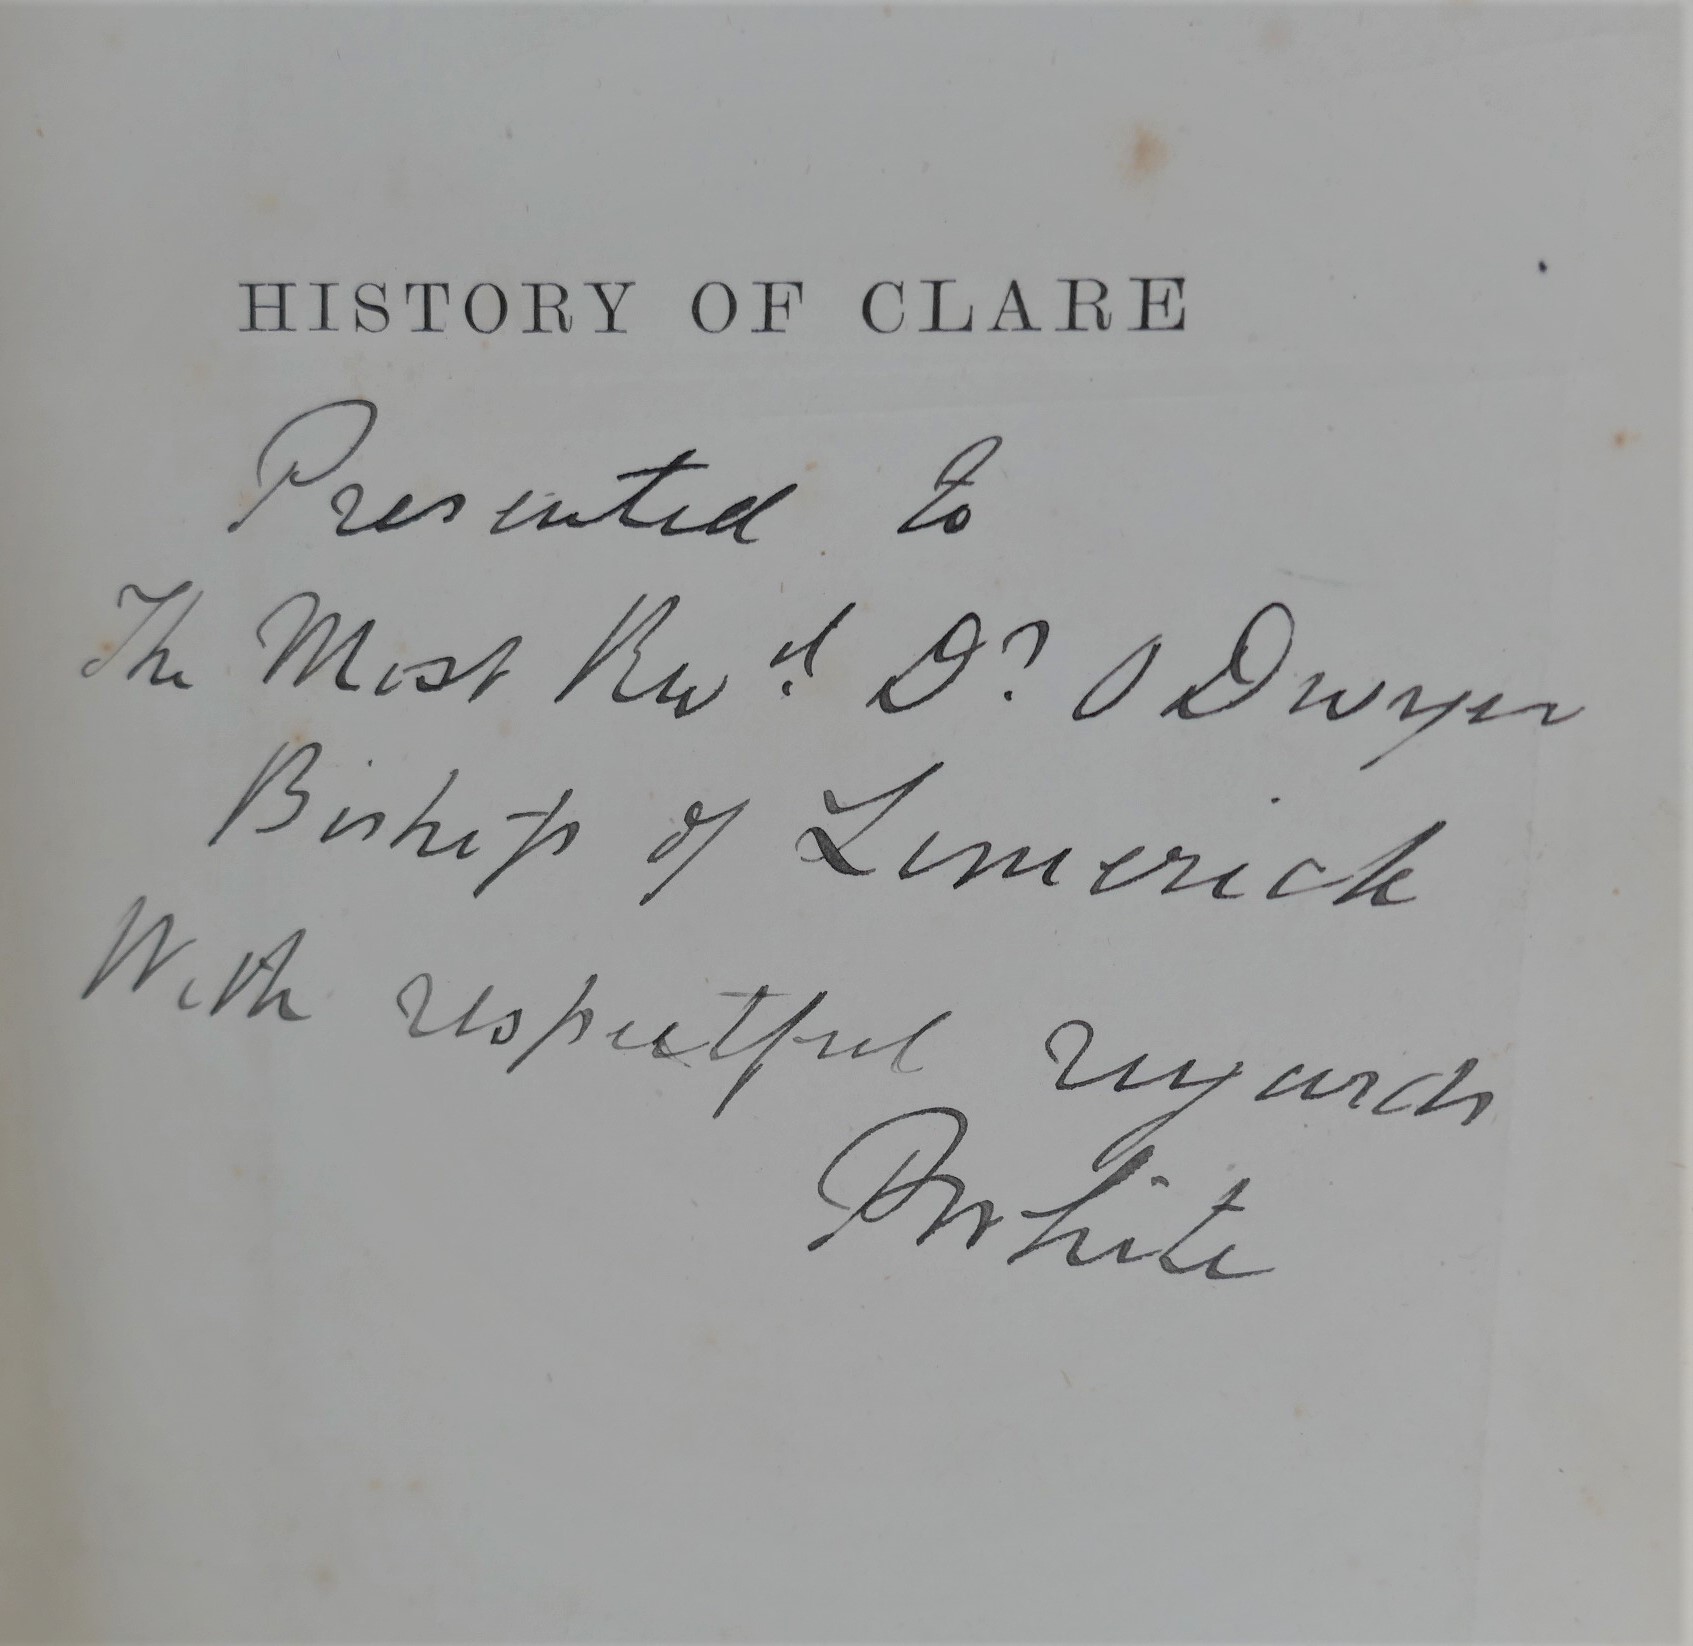 HISTORY OF CLARE
Presented to
The Most Revd. Dr. O Dwyer
Bishop of Limerick
With respectful regards
PWhite